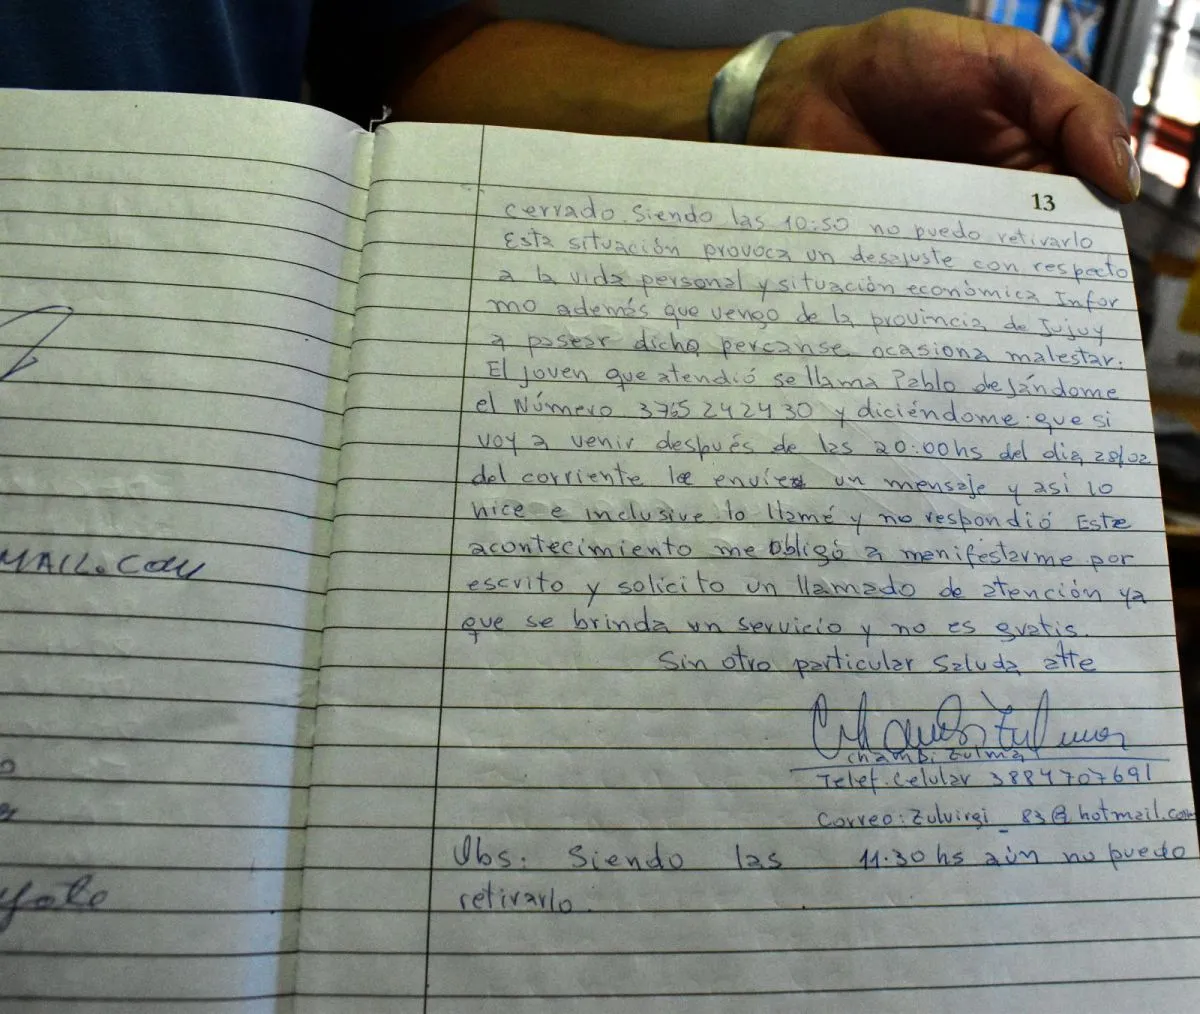 13
cerrado siendo las 10:50 no puedo retirarlo
Esta situación provoca un desajuste con respecto
a la vida personal y situación económica Infor
mo además que vengo de la provincia de Jujuy
a pasear dicho percanse ocasiona malestar.
El joven que atendió se llama Pablo dejándome
el Número 3765242430 y diciéndome que si
voy a venir después de las 20:00hs del dia 28/02
del corriente le envie un mensaje y asi lo
hice e inclusive lo llamé y no respondió Este
acontecimiento me obligó a manifestarme por
escrito y solicito un llamado de atención ya
que se brinda un servicio y no es gratis.
Sin otro particular Saluda atte
Chambi Zulma
Telef. Celular 3884707691
Correo: Zulvirgi_83@hotmail.com
Obs: Siendo las 11.30hs aún no puedo
retirarlo.
MAIL.COM